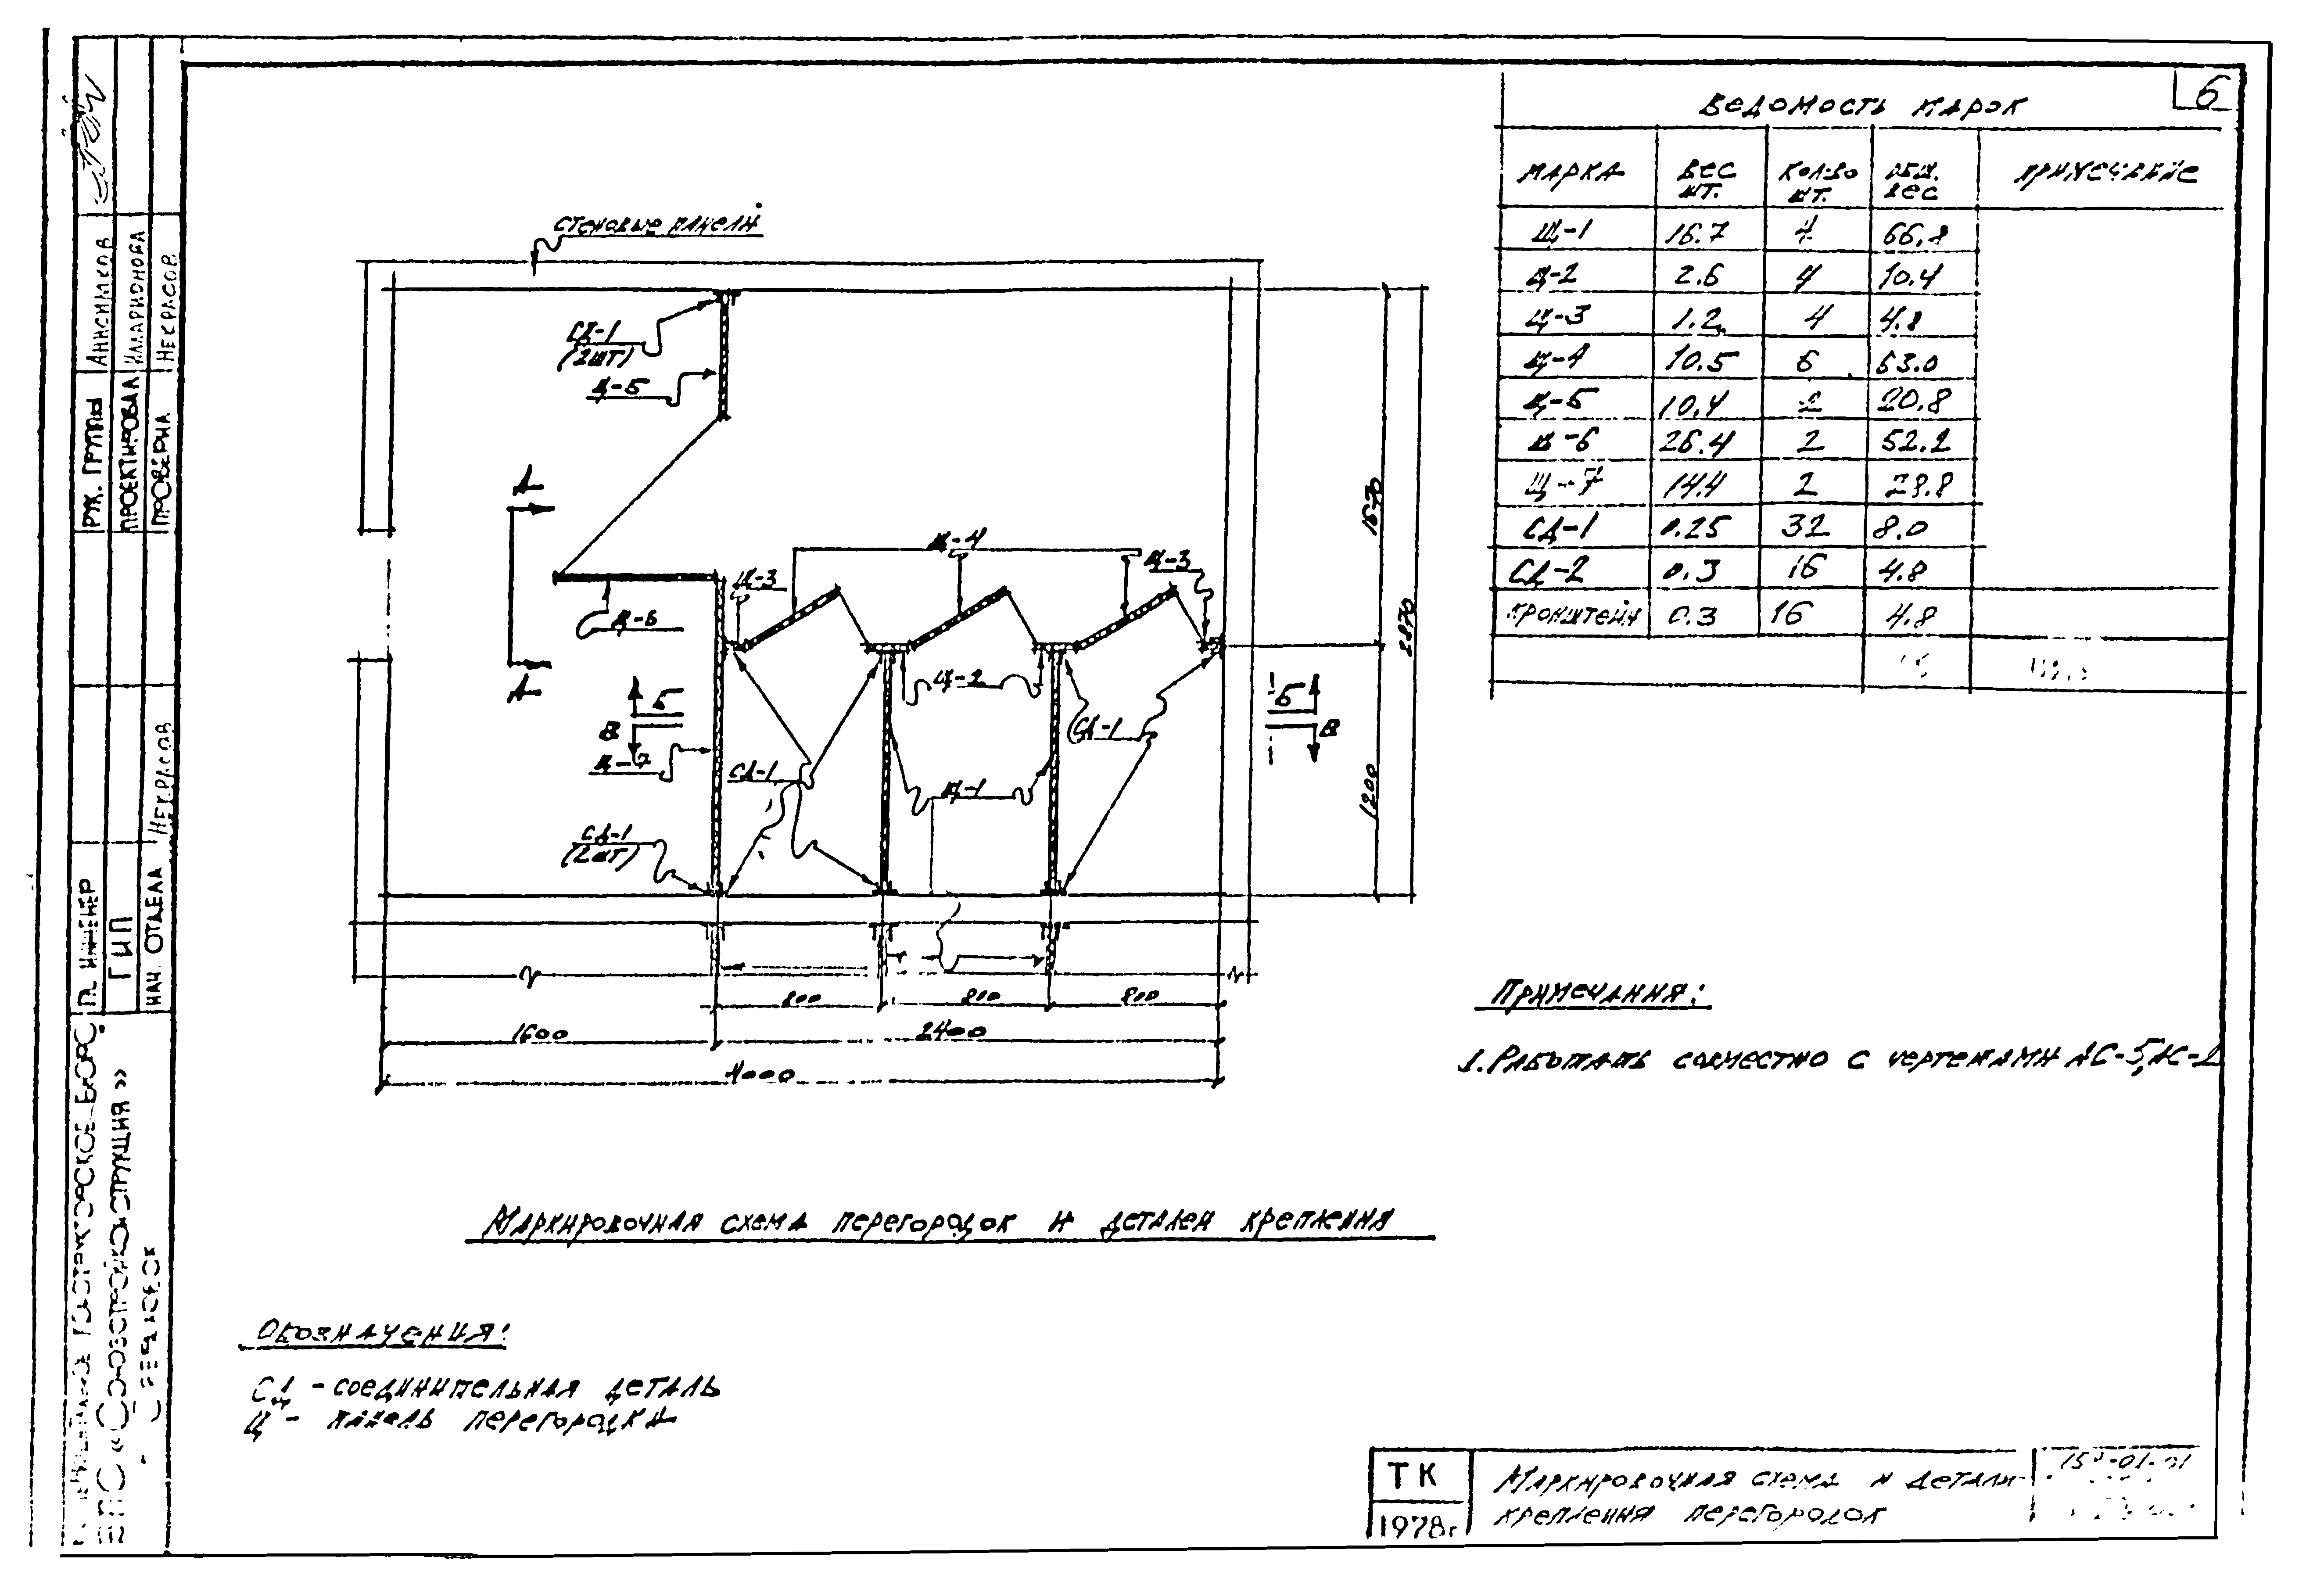 6
ВЕДОМОСТЬ МАРОК
МАРКА ВЕС ШТ. КОЛ-ВО ШТ. ОБЩ. ВЕС ПРИМЕЧАНИЕ
Щ-1 16.7 4 66.8
Щ-2 2.6 4 10.4
Щ-3 1.2 4 4.8
Щ-4 10.5 6 63.0
Щ-5 10.4 2 20.8
Щ-6 26.4 2 52.2
Щ-7 14.4 2 28.8
СД-1 0.25 32 8.0
СД-2 0.3 16 4.8
КРОНШТЕЙН 0.3 16 4.8
СТЕНОВЫЕ ПАНЕЛИ
СД-1
(2ШТ)
Щ-5
А
А
Щ-4
Щ-3
Щ-3
Щ-6
Щ-2
Б
В
Б
В
Щ-7
СД-1
СД-1
Щ-1
СД-1
(2ШТ)
1670
2870
1200
800 800 800
1600 2400
4000
ПРИМЕЧАНИЯ:
1. РАБОТАТЬ СОВМЕСТНО С ЧЕРТЕЖАМИ АС-5, АС-2
МАРКИРОВОЧНАЯ СХЕМА ПЕРЕГОРОДОК И ДЕТАЛЕЙ КРЕПЛЕНИЯ
ОБОЗНАЧЕНИЯ:
СД - СОЕДИНИТЕЛЬНАЯ ДЕТАЛЬ
Щ - ПАНЕЛЬ ПЕРЕГОРОДКИ
ТК
1978г
МАРКИРОВОЧНАЯ СХЕМА И ДЕТАЛИ
КРЕПЛЕНИЯ ПЕРЕГОРОДОК
РУК. ГРУППЫ АНИСИМКОВ
ПРОЕКТИРОВАЛ ИЛЛАРИОНОВА
ПРОВЕРИЛ НЕКРАСОВ
ГЛ. ИНЖЕНЕР
ГИП
НАЧ. ОТДЕЛА НЕКРАСОВ
КОНСТРУКТОРСКОЕ БЮРО